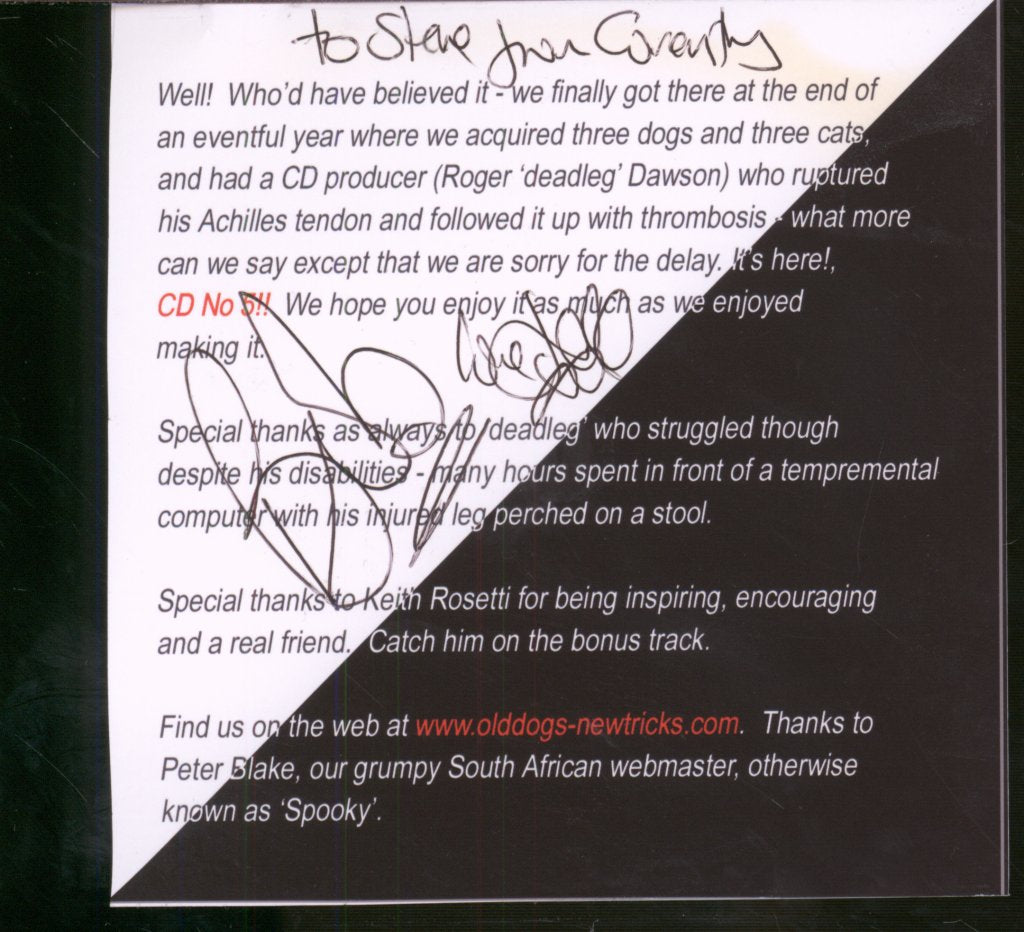 to Steve from Coventry
Well! Who'd have believed it - we finally got there at the end of
an eventful year where we acquired three dogs and three cats,
and had a CD producer (Roger 'deadleg' Dawson) who ruptured
his Achilles tendon and followed it up with thrombosis - what more
can we say except that we are sorry for the delay. It's here!,
CD No 5!! We hope you enjoy it as much as we enjoyed
making it.
Special thanks as always to 'deadleg' who struggled though
despite his disabilities - many hours spent in front of a tempremental
computer with his injured leg perched on a stool.
Special thanks to Keith Rosetti for being inspiring, encouraging
and a real friend. Catch him on the bonus track.
Find us on the web at www.olddogs-newtricks.com. Thanks to
Peter Blake, our grumpy South African webmaster, otherwise
known as 'Spooky'.